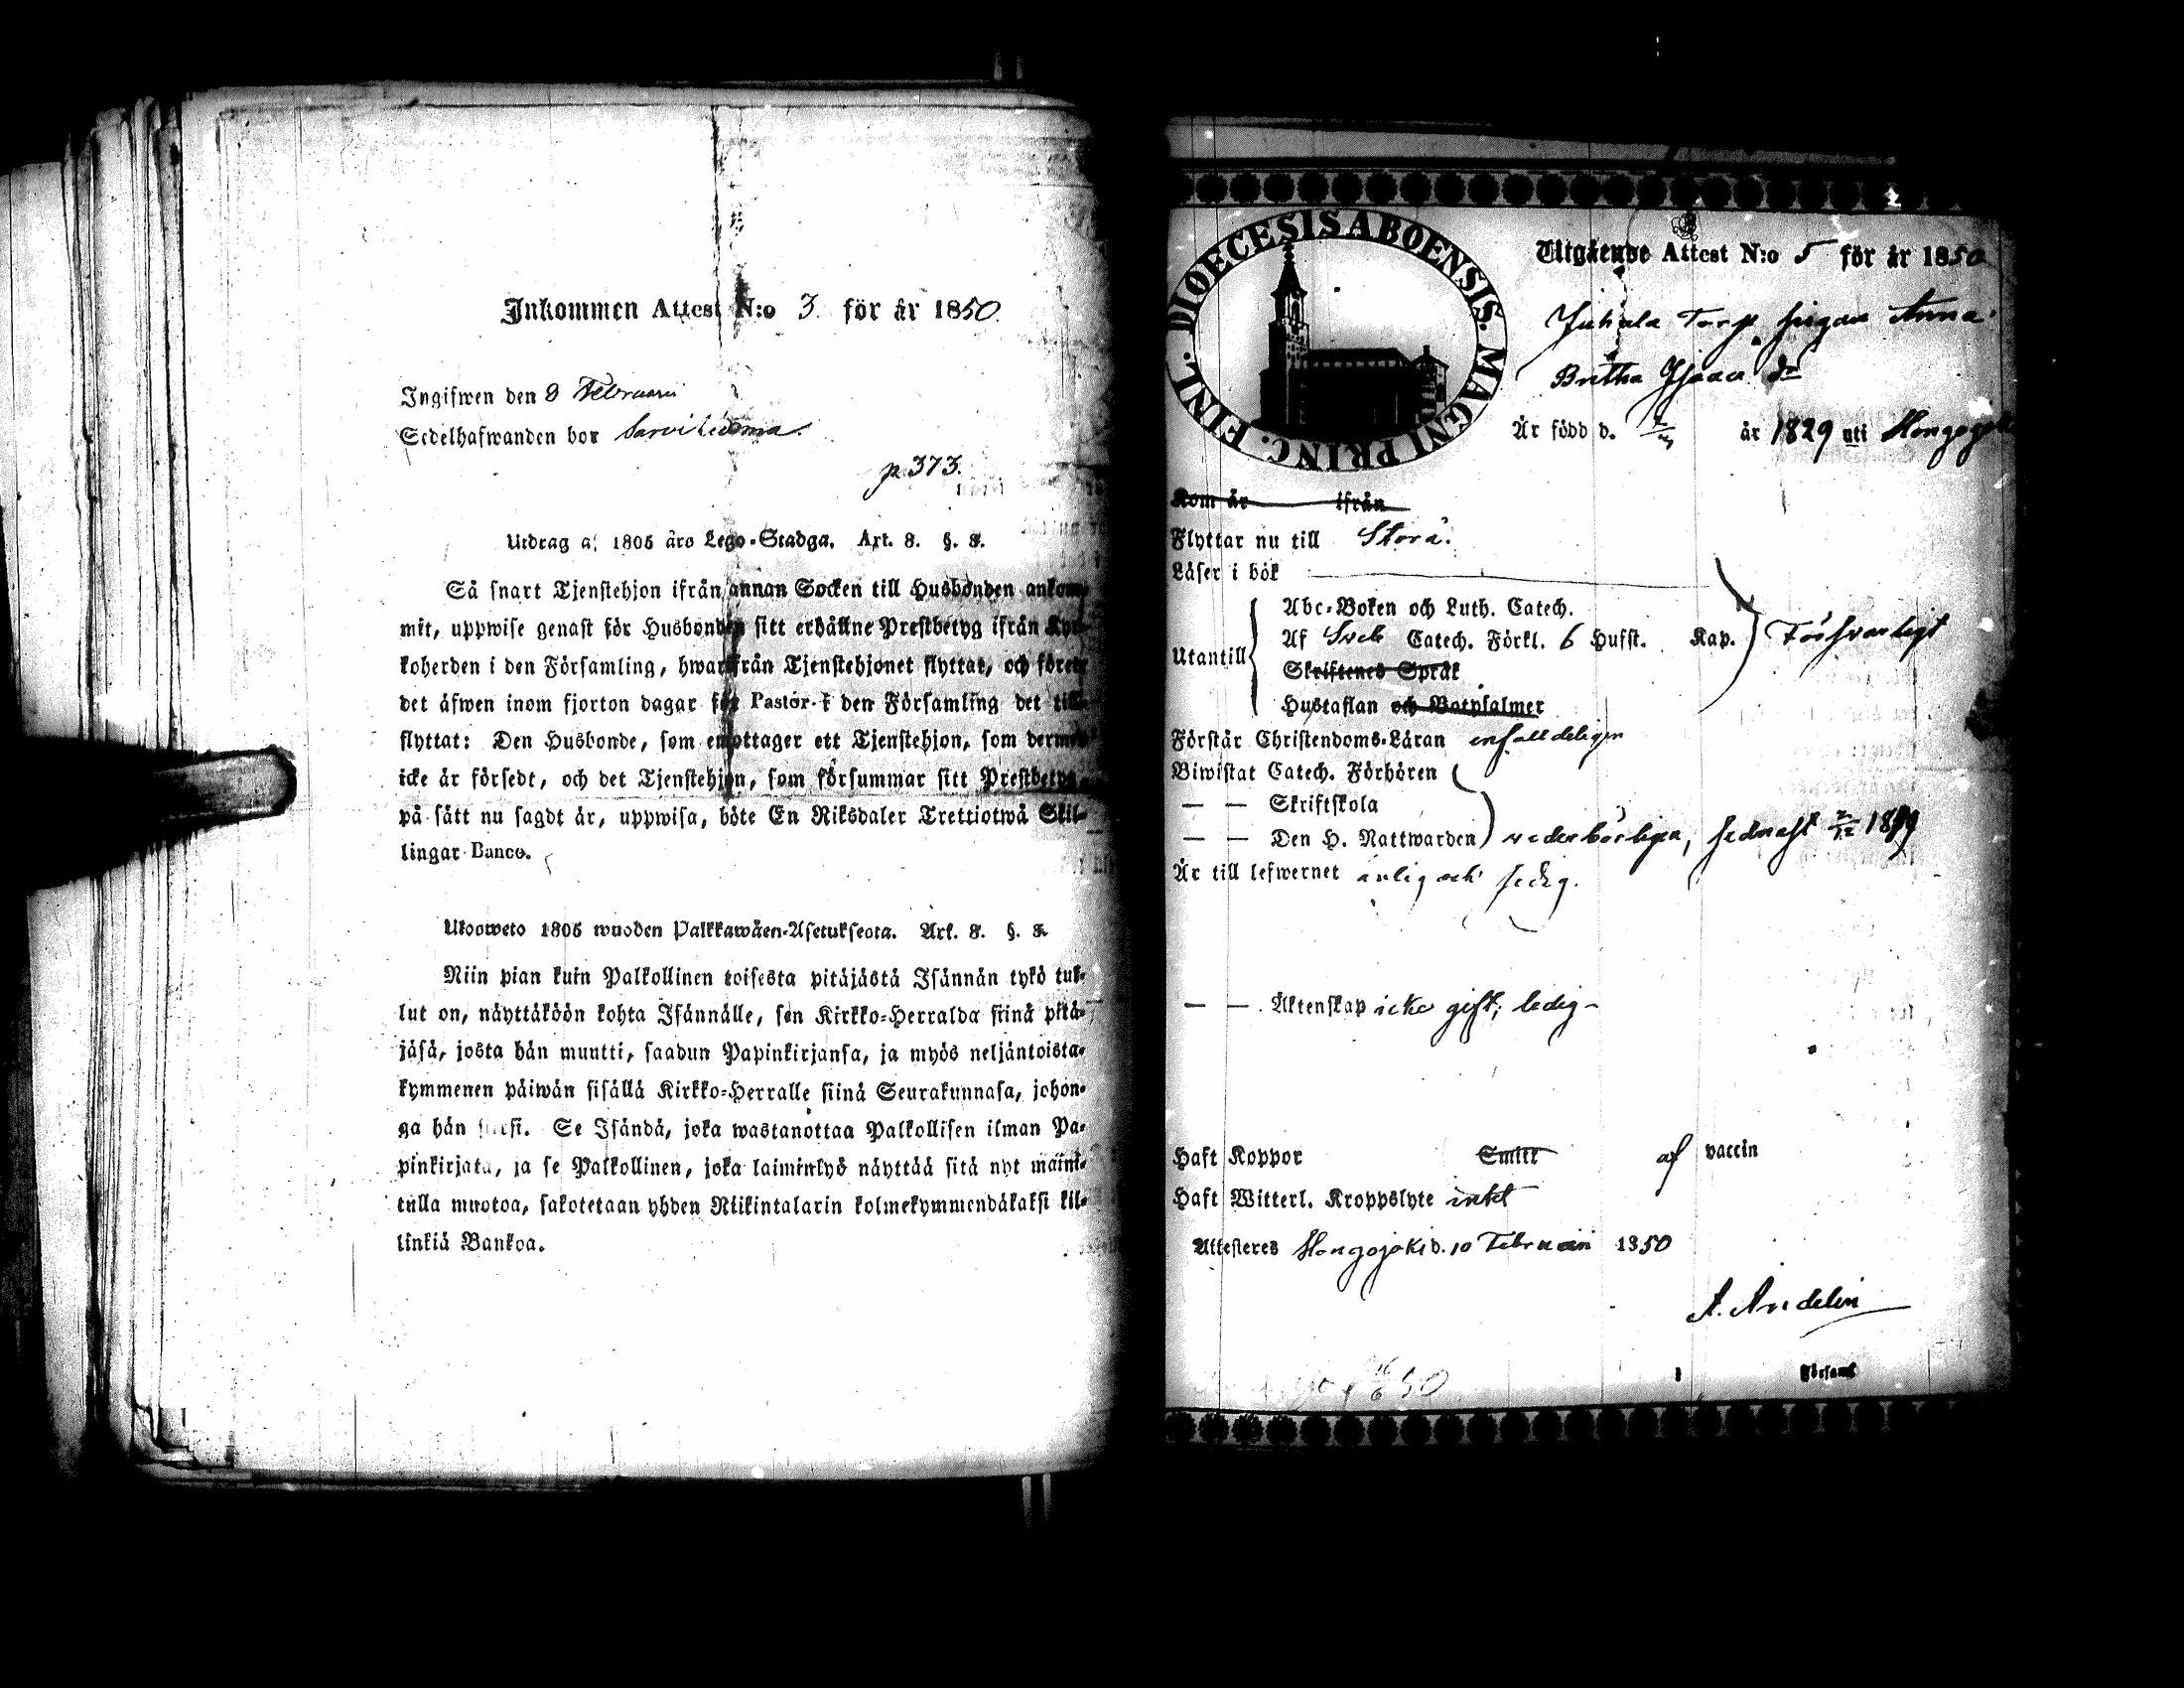 Inkommen Attest N:o 3 för år 1850
Ingifwen den 8 Februari
Sedelhafwanden bor
p 373.
Utdrag af 1805 års Lego-Stadga. Art. 8. §. 8.
Så snart Tjenstehjon ifrån annan Socken till Husbonden ankom-
mit, uppwise genast för Husbonden sitt erhållne Prestbetyg ifrån Kyr-
koherden i den Församling, hwarifrån Tjenstehjonet flyttat, och förete
det äfwen inom fjorton dagar för Pastor i den Församling det till-
flyttat: Den Husbonde, som emottager ett Tjenstehjon, som dermed
icke är försedt, och det Tjenstehjon, som försummar sitt Prestbetyg,
på sätt nu sagdt är, uppwisa, böte En Riksdaler Trettiotwå Skil-
lingar Banco.
Ulosweto 1805 wuoden Palkkawäen-Asetuksesta. Art. 8. §. 8.
Niin pian kuin Palkollinen toisesta pitäjästä Isännän tykö tul-
lut on, näyttäköön kohta Isännälle, sen Kirkko-Herralda siinä pitä-
jäsä, josta hän muutti, saadun Papinkirjansa, ja myös neljäntoista-
kymmenen päiwän sisällä Kirkko-Herralle siinä Seurakunnasa, johon-
ga hän siirsi. Se Isändä, joka wastanottaa Palkollisen ilman Pa-
pinkirjata, ja se Palkollinen, joka laiminlyö näyttää sitä nyt maini-
tulla muotoa, sakotetaan yhden Riikintalarin kolmekymmendäkaksi kil-
linkiä Bankoa.
DIOECESIS ABOENSIS. MAGNI PRINC. FINL.
Utgående Attest N:o 5 för år 1850
Juhala Torp pigan Anna
Britha Isaacs dr
Är född d. år 1829 uti Hongojoki
Kom år ifrån
Flyttar nu till Storå.
Läser i bok
Abc-Boken och Luth. Catech.
Utantill Af Sveb Catech. Förkl. 6 Hufst. Kap. Försvarligt
Skriftenes Språk
Hustaflan och Botpsalmer
Förstår Christendoms-Läran enfalldeligen
Biwistat Catech. Förhören
— — Skriftskola
— — Den H. Nattwarden wederbörligen, sednast 18
Är till lefwernet ärlig och sedig.
— — Äktenskap icke gift, ledig
Haft Koppor Smitt af vaccin
Haft Witterl. Kroppslyte intet
Attesteres Hongojoki d. 10 Februari 1850
A. Andelin
i Församl